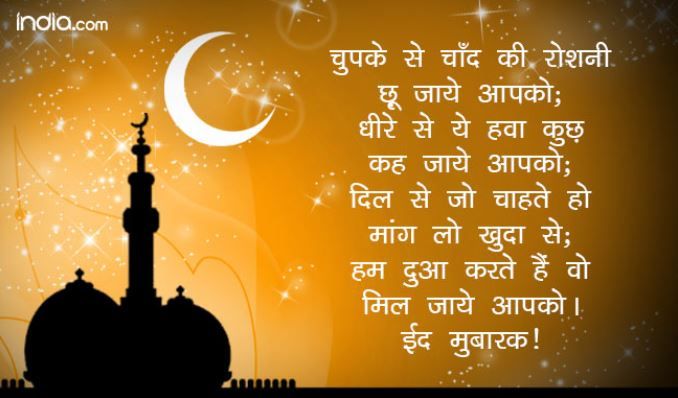 india.com
चुपके से चाँद की रोशनी
छू जाये आपको;
धीरे से ये हवा कुछ
कह जाये आपको;
दिल से जो चाहते हो
मांग लो खुदा से;
हम दुआ करते हैं वो
मिल जाये आपको।
ईद मुबारक!